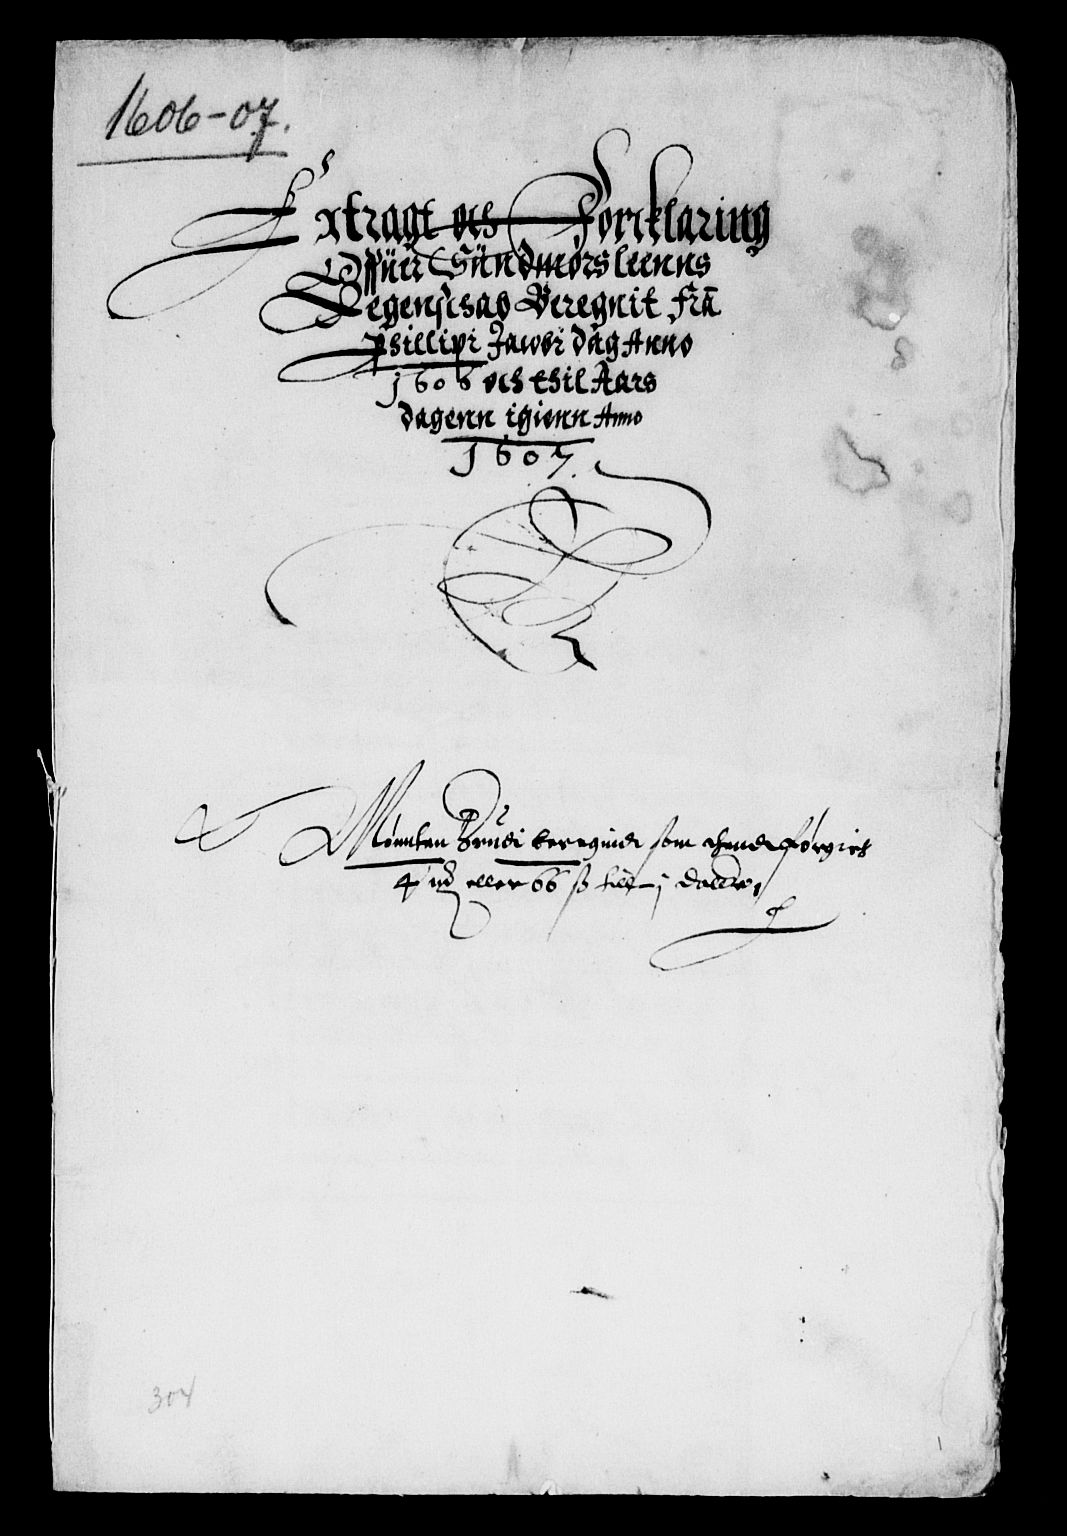 1606-07.
Extragt och Forcklaring
Offuer Sündmørs leenns
Regenschab Beregnit frā
Phillipi Jacobi dag Anno
1606 och thil Aars
dagenn igienn Anno
1607.
Mønnten herudi beregnidt som thend
4 mḳ eller 66 ß till j daller
304